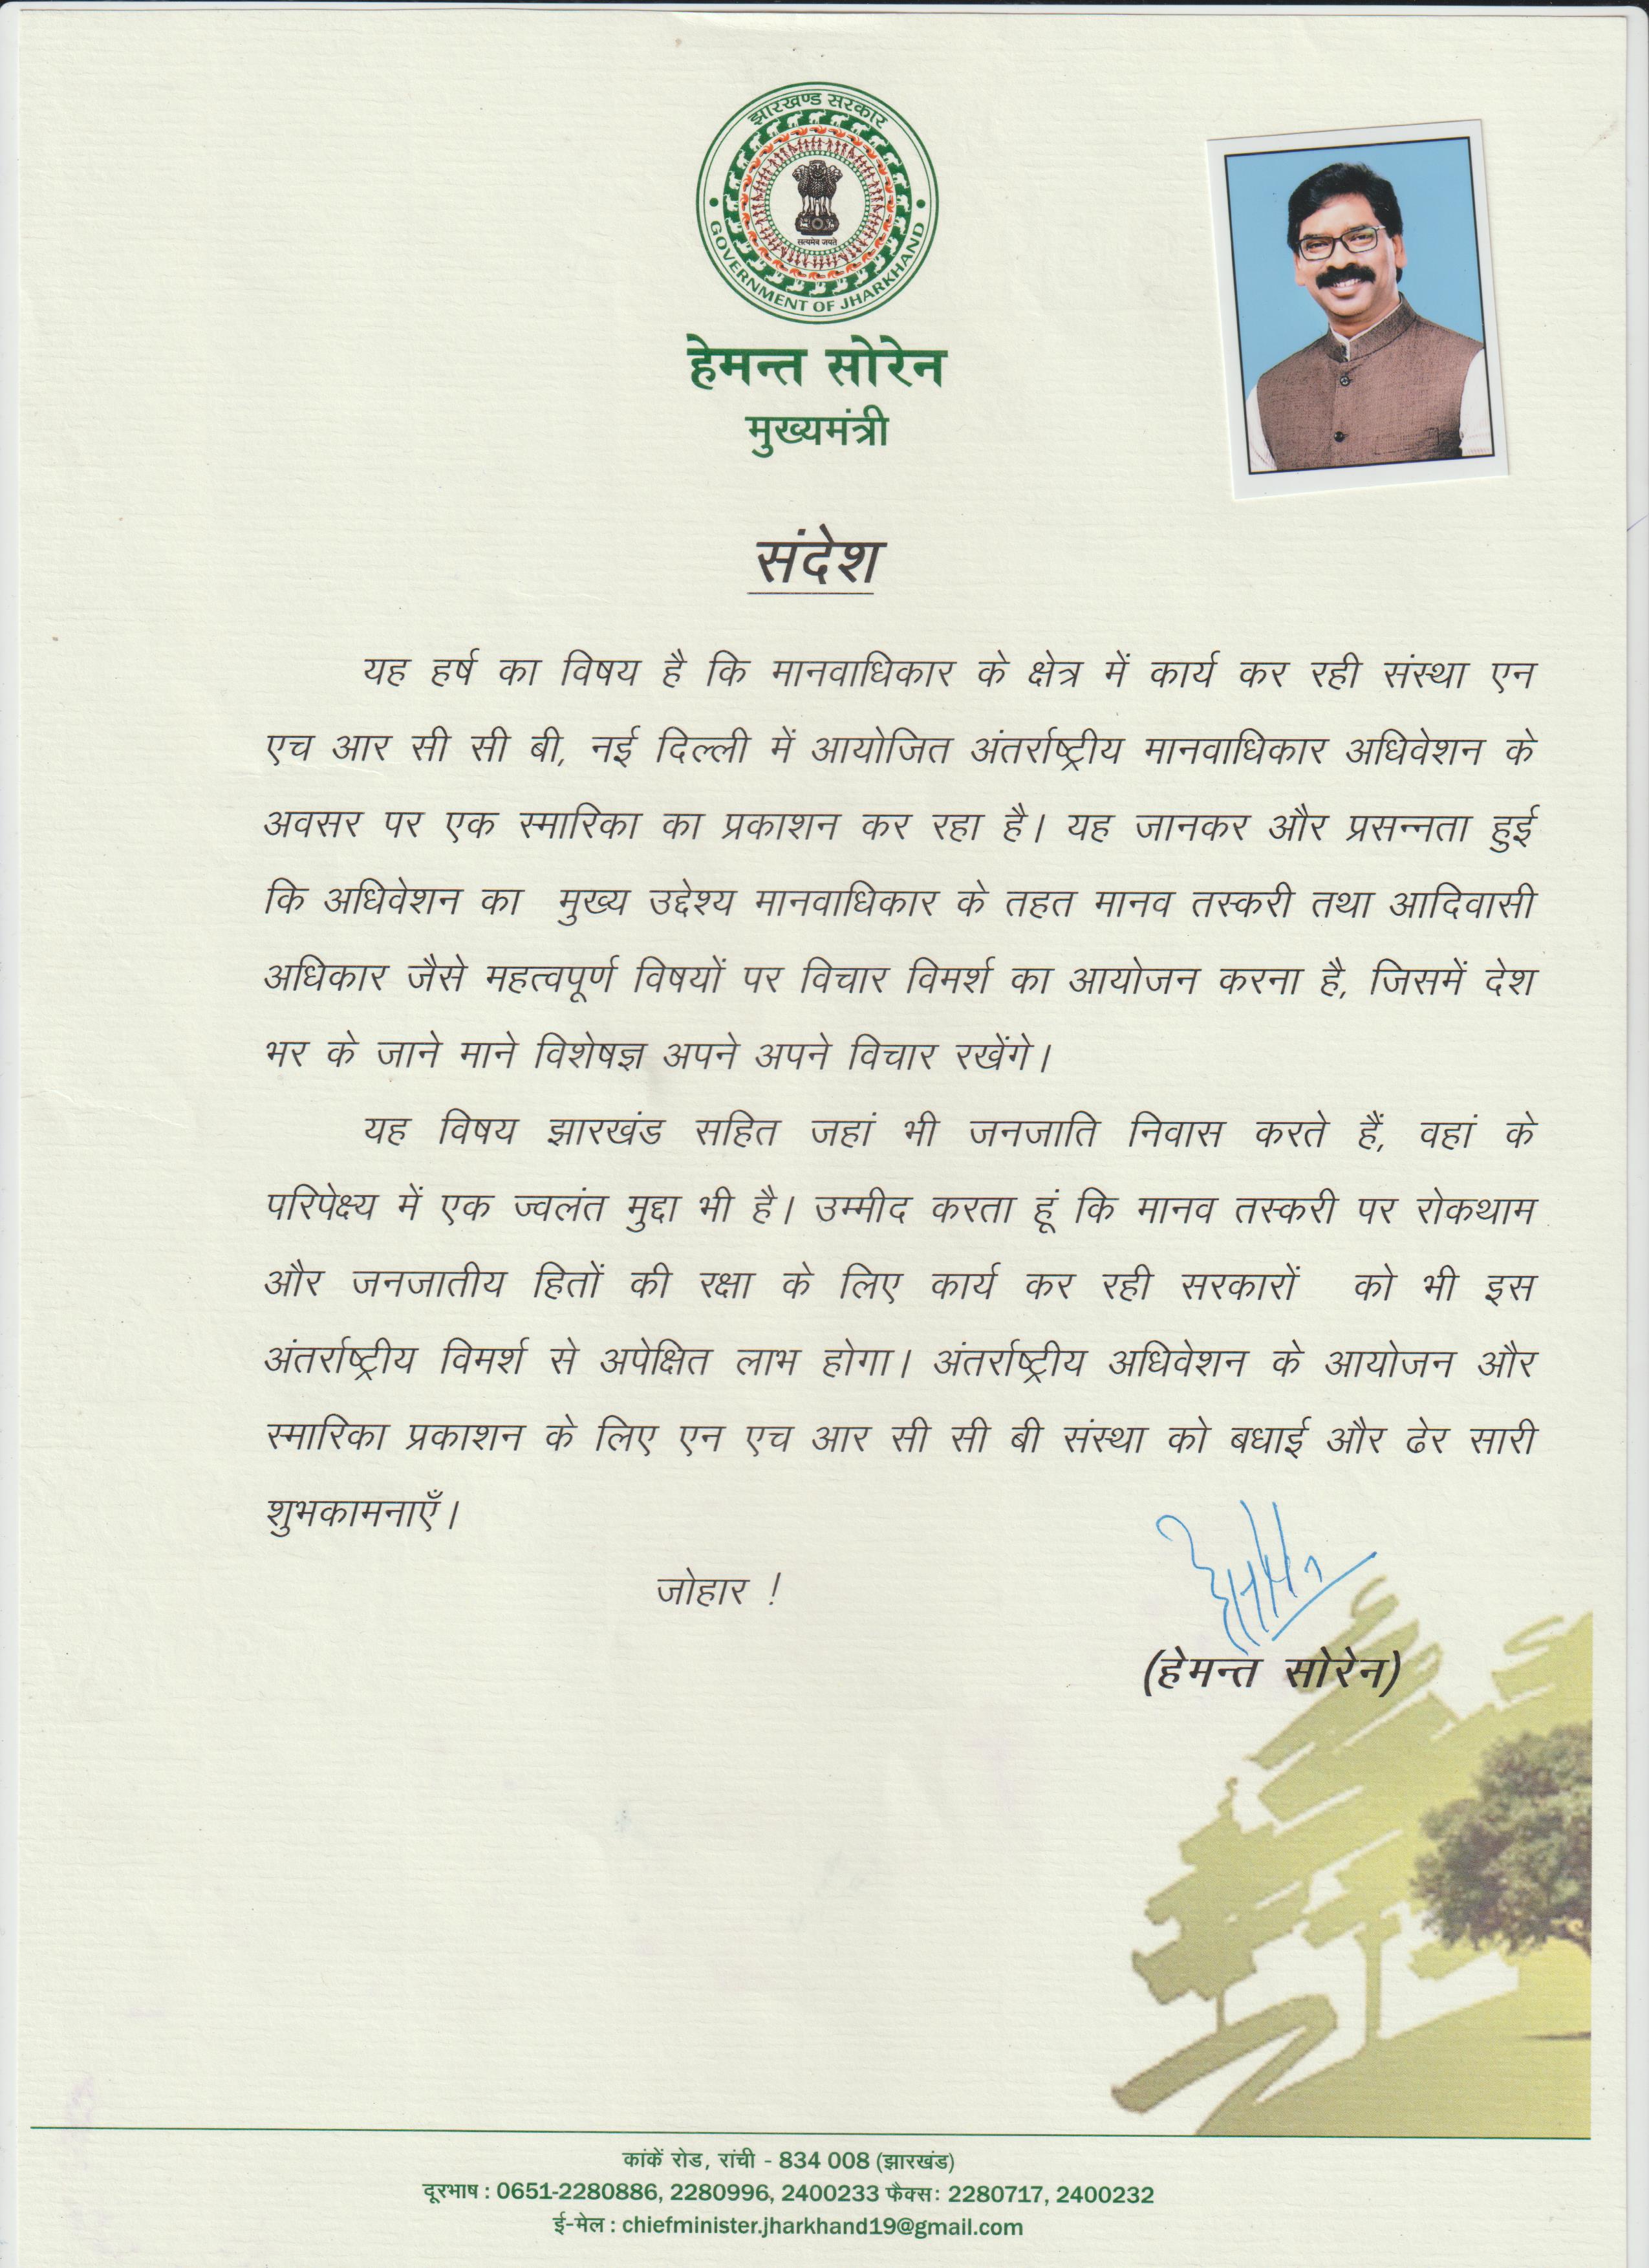 झारखण्ड सरकार
सत्यमेव जयते
GOVERNMENT OF JHARKHAND
हेमन्त सोरेन
मुख्यमंत्री
संदेश
यह हर्ष का विषय है कि मानवाधिकार के क्षेत्र में कार्य कर रही संस्था एन
एच आर सी सी बी, नई दिल्ली में आयोजित अंतर्राष्ट्रीय मानवाधिकार अधिवेशन के
अवसर पर एक स्मारिका का प्रकाशन कर रहा है। यह जानकर और प्रसन्नता हुई
कि अधिवेशन का मुख्य उद्देश्य मानवाधिकार के तहत मानव तस्करी तथा आदिवासी
अधिकार जैसे महत्वपूर्ण विषयों पर विचार विमर्श का आयोजन करना है, जिसमें देश
भर के जाने माने विशेषज्ञ अपने अपने विचार रखेंगे।
यह विषय झारखंड सहित जहां भी जनजाति निवास करते हैं, वहां के
परिपेक्ष्य में एक ज्वलंत मुद्दा भी है। उम्मीद करता हूं कि मानव तस्करी पर रोकथाम
और जनजातीय हितों की रक्षा के लिए कार्य कर रही सरकारों को भी इस
अंतर्राष्ट्रीय विमर्श से अपेक्षित लाभ होगा। अंतर्राष्ट्रीय अधिवेशन के आयोजन और
स्मारिका प्रकाशन के लिए एन एच आर सी सी बी संस्था को बधाई और ढेर सारी
शुभकामनाएँ।
जोहार !
(हेमन्त सोरेन)
कांकें रोड, रांची - 834 008 (झारखंड)
दूरभाष : 0651-2280886, 2280996, 2400233 फैक्स: 2280717, 2400232
ई-मेल : chiefminister.jharkhand19@gmail.com